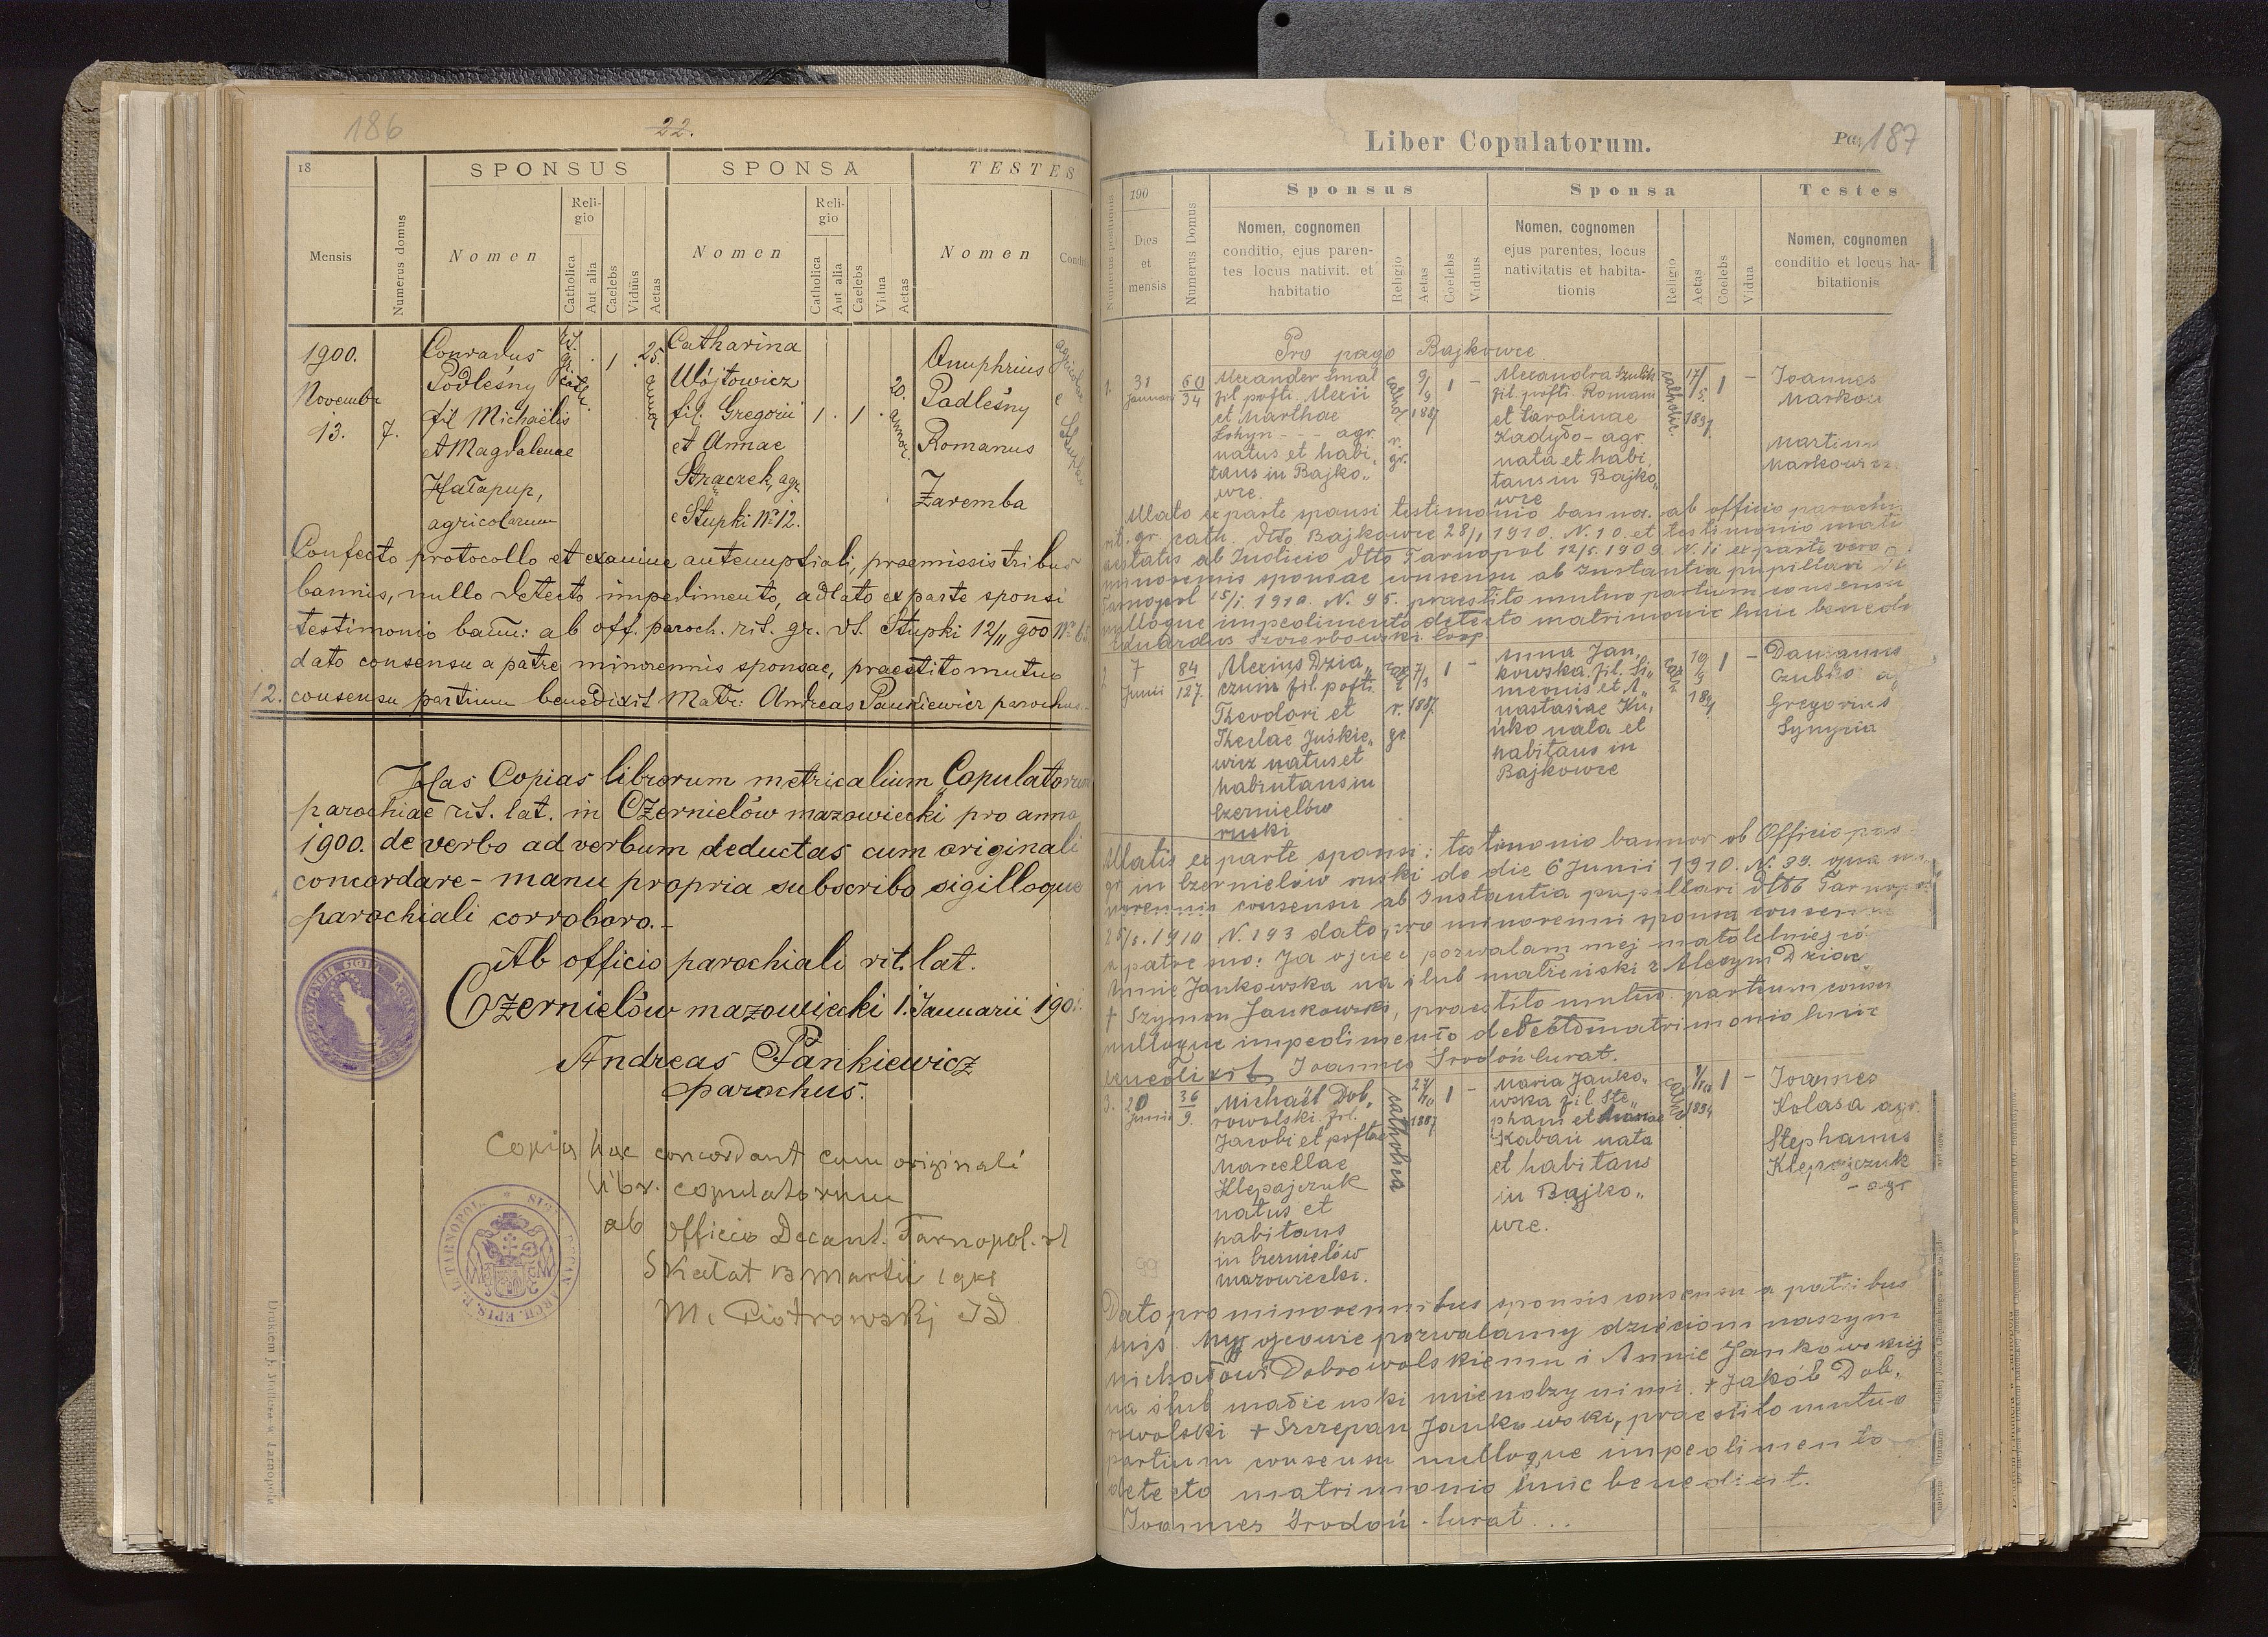 186
22.
18
SPONSUS
SPONSA
TESTES
Mensis
Numerus domus
Nomen
Religio
Catholica
Aut alia
Caelebs
Viduus
Aetas
Nomen
Religio
Catholica
Aut alia
Caelebs
Vidua
Aetas
Nomen
1900.
Novembr
13.
7.
Conradus
Podleśny
fil Michaëlis
et Magdalenae
Hałapup,
agricolarum
rit. gr. cath.
1
25. annor
Catharina
Wójtowicz
fil. Gregorii
et Annae
Strączek, agr.
e Stupki Nº 12.
1.
1.
20. annor
Onuphrius
Padleśny
Romanus
Zaremba
agricolae
e
Stupki
Confecto protocollo et examine antenuptiali, praemissis tribus
bannis, nullo detecto impedimento, adlato ex parte sponsi
testimonio bann: ab off. paroch. rit. gr. dt. Stupki 12/11 900 Nº
dato consensu a patre minorennis sponsae, praestito mutuo
12. consensu partium benedixit Matr: Andreas Pankiewicz parochus
Has Copias librorum metricalium Copulatorum
parochiae rit. lat. in Czernielów mazowiecki pro anno
1900. de verbo ad verbum deductas cum originali
concordare - manu propria subscribo sigilloque
parochiali corroboro. -
Ab officio parochiali rit. lat.
Czernielów mazowiecki 1. Januarii 190
Andreas Pankiewicz
parochus.
Copia haec concordant cum originali
libr. copulatorum
ab officio Decant. Tarnopol. dt
Skałat 13 Martii
M. Piotrowski
Drukiem J. Stullera w Tarnopolu
Liber Copulatorum.
Pag. 187
Numerus positionis
190
Dies et mensis
Numerus Domus
Sponsus
Nomen, cognomen
conditio, ejus paren-
tes locus nativit. et
habitatio
Religio
Aetas
Coelebs
Viduus
Sponsa
Nomen, cognomen
ejus parentes, locus
nativitatis et habita-
tionis
Religio
Aetas
Coelebs
Vidua
Testes
Nomen, cognomen
conditio et locus ha-
bitationis
Pro pago Bajkowce
1.
31
Januari
60
34
Alexander Smal
fil. postt. Alexii
et Marthae
Lohyn - - - agr.
natus et habi,
tans in Bajko„
wce.
cathol. r. gr.
9/9 1887
1
-
Alexandra
fil. postt. Romani
et Carolinae
Zadyło - agr.
nata et habi,
tans in Bajko„
wce
catholic.
17/5. 1891.
1
-
Joannes
Markow
Martinus
Markowicz.
Allato ex parte sponsi testimonio bannor. ab officio parochi
rit. gr. cath. dtto Bajkowce 28/1 1910. N. 10. et testimonio mati
aetatis ab Iudicio dtto Tarnopol 12/5. 1909. N. ex parte vero
minorennis sponsae consensu ab Instantia pupillari dt
Tarnopol 15/1. 1910. N. 95. praestito mutuo partium consensu
nulloque impedimento detecto matrimonio huic bened
Eduardus Szczerbowski Coop.
2
7
Junii
84
127
Alexius Dzia„
czun fil. postt.
Theodori et
Theclae Juśkie„
wicz natus et
habitans in
Czernielów
ruski
cath. r. gr
7/3 1887
1
-
Anna Jan„
kowska fil. Si„
meonis et A„
nastasiae Ku„
śko nata et
habitans in
Bajkowce
1
-
Damianus
Czubko
Gregorius
Synycia
Allatis ex parte sponsi: testimonio bannor. ab Officio par
gr. in Czernielów ruski de die 6 Junii 1910. N. 39. qua mi
norennis consensu ab Instantia pupillari dtto Tarnopol
1910 N. 193 dato pro minorenni sponsa consensu
a patre suo: Ja ojciec pozwalam mej małoletniej có
Annie Jankowska na ślub małżeński z Alexym Dziac
+ Szymon Jankowski, praestito mutuo partium consen
nulloque impedimento detecto matrimonio huic
benedixit Joannes Srodoń Curat.
3.
20
Junii
36
9.
Michaël Dob„
rowolski fil.
Jacobi et postt.
Marcellae
Klepajczuk
natus et
habitans
in Czernielów
mazowiecki.
catholica
1887
1
-
Maria Janko„
wska fil. Ste„
phani et Mariae
Kaban nata
et habitans
in Bajko„
wce.
1894
1
-
Joannes
Kolasa agr.
Stephanus
Klepajczuk
- agr
Dato pro minorennibus sponsis consensu a patribus
suis. My ojcowie pozwalamy dzieciom naszym
Michałowi Dobrowolskiemu i Annie Jankowskiej
na ślub małżeński między nimi. + Jakób Dob„
rowolski + Szczepan Jankowski, praestito mutuo
partium consensu nulloque impedimento
detecto matrimonio huic benedixit.
Joannes Srodoń. Curat...